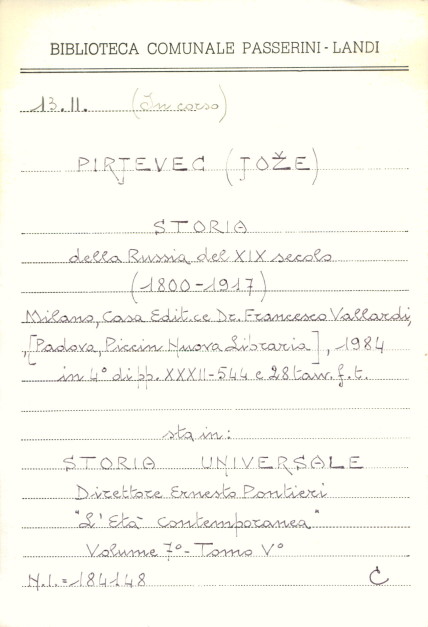 BIBLIOTECA COMUNALE PASSERINI-LANDI
13.II. (In corso)
PIRJEVEC (JOŽE)
STORIA
della Russia del XIX secolo
(1800-1917)
Milano, Casa Edit.ce Dr. Francesco Vallardi,
,[Padova, Piccin Nuova Libraria], 1984
in 4° di pp. XXXII-544 e 28 tav. f.t.
sta in:
STORIA UNIVERSALE
Direttore Ernesto Pontieri
"L'Età Contemporanea"
Volume 7° - Tomo V°
N.I. = 184148 C